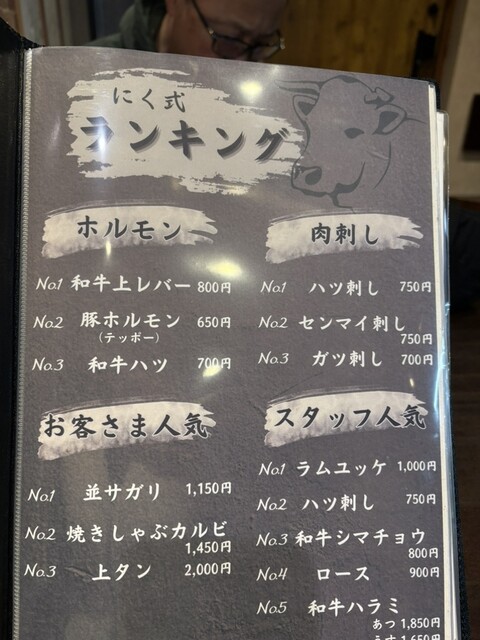 にく式
ランキング
ホルモン
No.1 和牛上レバー 800円
No.2 豚ホルモン 650円
(テッポー)
No.3 和牛ハツ 700円
肉刺し
No.1 ハツ刺し 750円
No.2 センマイ刺し
750円
No.3 ガツ刺し 700円
お客さま人気
No.1 並サガリ 1,150円
No.2 焼きしゃぶカルビ
1,450円
No.3 上タン 2,000円
スタッフ人気
No.1 ラムユッケ 1,000円
No.2 ハツ刺し 750円
No.3 和牛シマチョウ
800円
No.4 ロース 900円
No.5 和牛ハラミ
あつ 1,850円
うす 1,650円